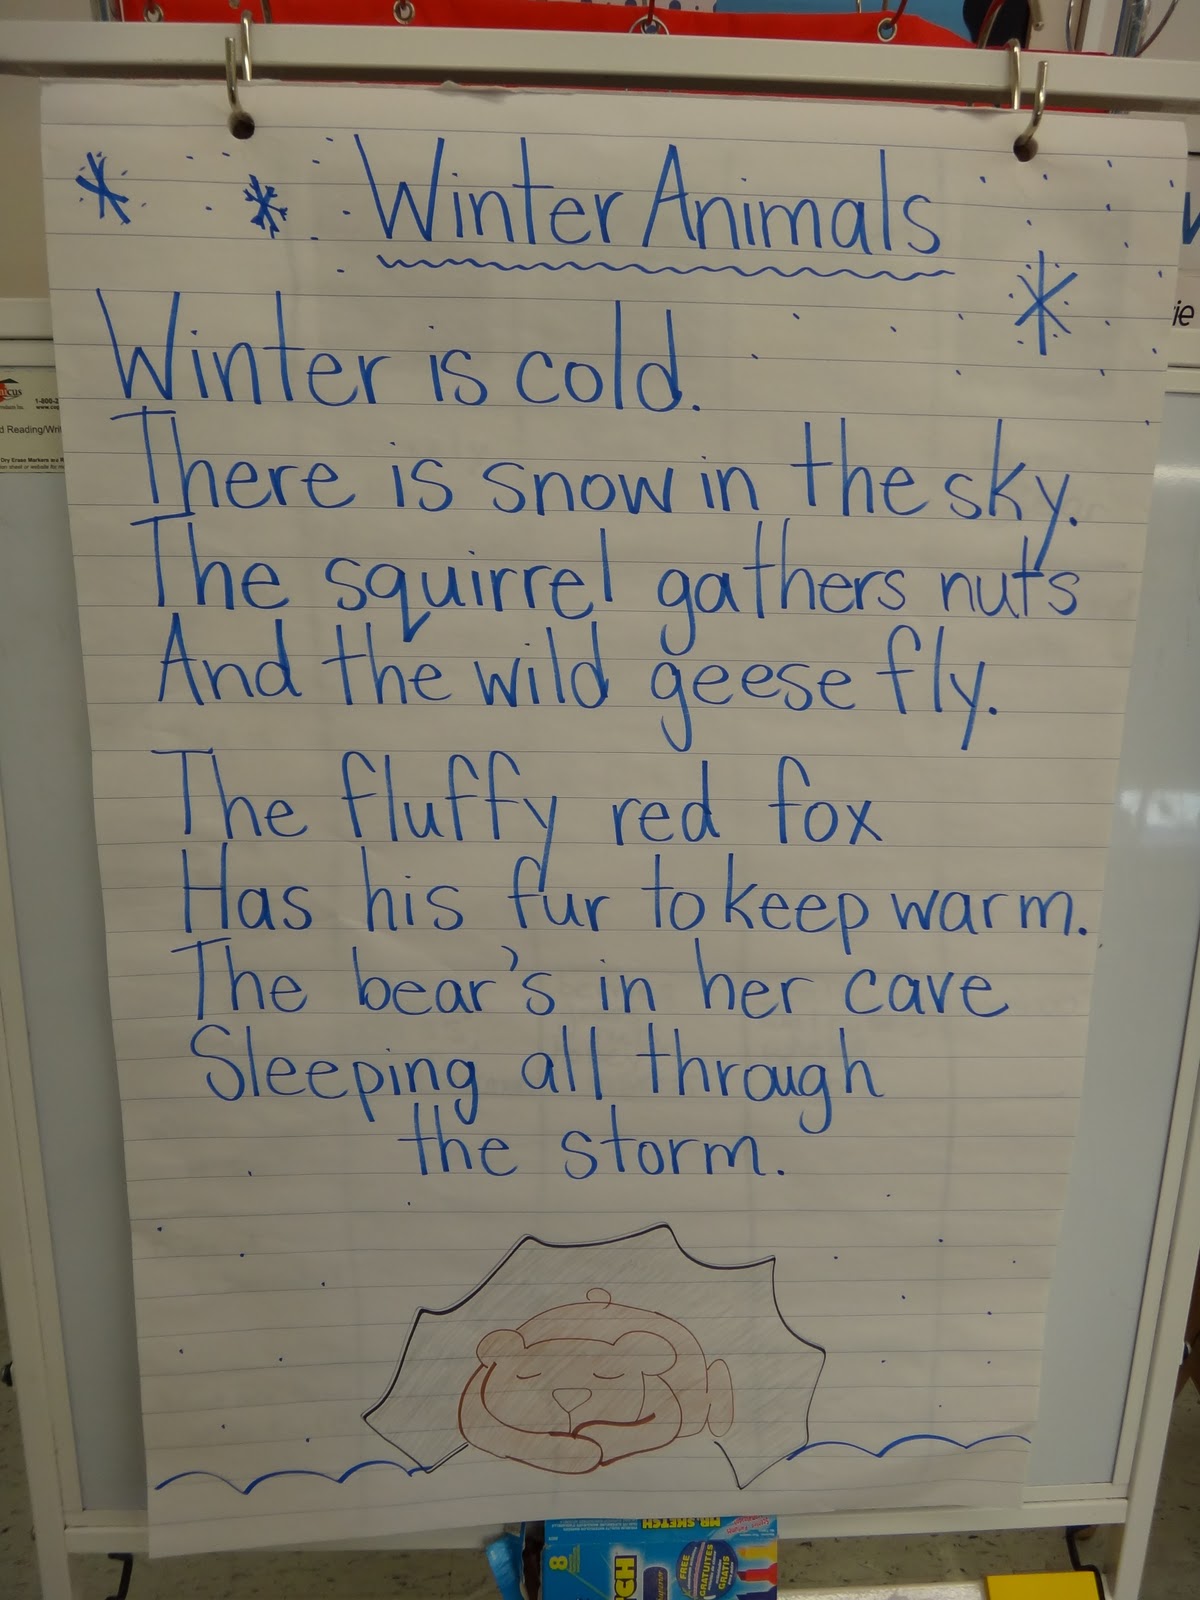 Winter Animals
Winter is cold.
There is snow in the sky.
The squirrel gathers nuts
And the wild geese fly.
The fluffy red fox
Has his fur to keep warm.
The bear's in her cave
Sleeping all through
the storm.
ie
1-800-2
d Reading/Wri
MR. SKETCH
8
FREE
GRATUITES
GRATIS